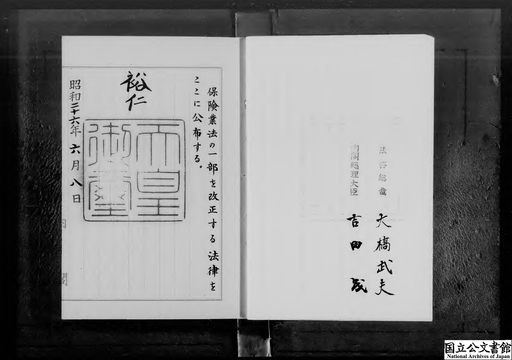 保険業法の一部を改正する法律を
ここに公布する。
裕仁
天皇御璽
昭和二十六年六月八日
内閣
法務総裁 大橋武夫
内閣総理大臣 吉田茂
国立公文書館
National Archives of Japan